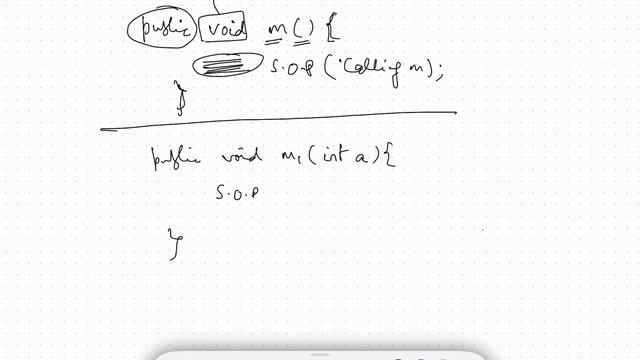 public void m() {
S.O.P ("Calling m);
}
public void m1(int a){
S.O.P
}